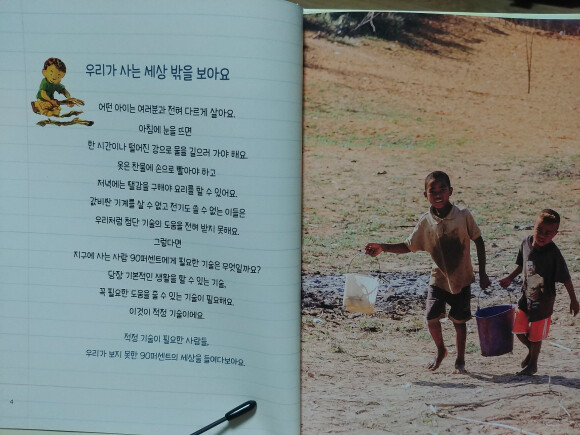 우리가 사는 세상 밖을 보아요
어떤 아이는 여러분과 전혀 다르게 살아요.
아침에 눈을 뜨면
한 시간이나 떨어진 강으로 물을 길으러 가야 해요.
옷은 찬물에 손으로 빨아야 하고
저녁에는 땔감을 구해야 요리를 할 수 있어요.
값비싼 기계를 살 수 없고 전기도 쓸 수 없는 이들은
우리처럼 첨단 기술의 도움을 전혀 받지 못해요.
그렇다면
지구에 사는 사람 90퍼센트에게 필요한 기술은 무엇일까요?
당장 기본적인 생활을 할 수 있는 기술,
꼭 필요한 도움을 줄 수 있는 기술이 필요해요.
이것이 적정 기술이에요.
적정 기술이 필요한 사람들,
우리가 보지 못한 90퍼센트의 세상을 들여다보아요.
4